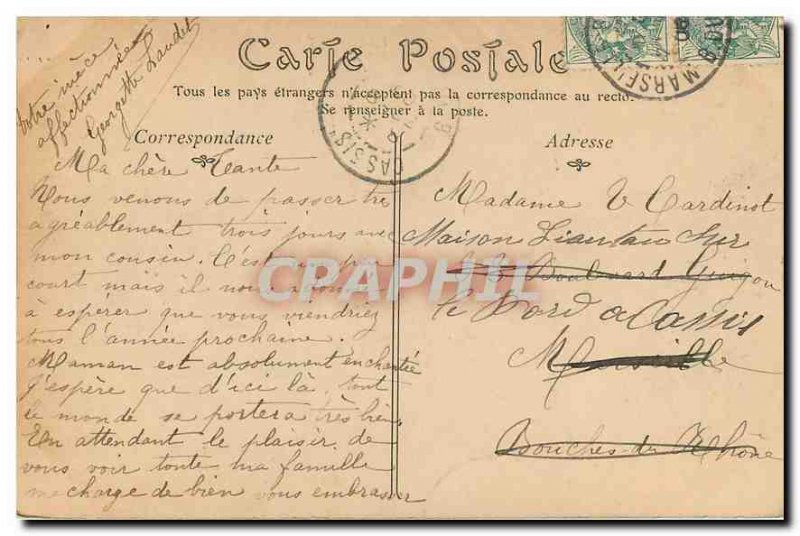 Carte Postale
Tous les pays étrangers n'acceptent pas la correspondance au recto.
Se renseigner à la poste.
Correspondance
Adresse
MARSEILLE
CASSIS
Votre nièce
affectionnée
Georgette Laudet
Ma chère Tante
Nous venons de passer très
agréablement trois jours avec
mon cousin. C'est un peu
court mais il nous
à espérer que vous viendriez
tous l'année prochaine.
Maman est absolument enchantée
J'espère que d'ici là, tout
le monde se portera très bien.
En attendant le plaisir de
vous voir toute ma famille
me charge de bien vous embrasser
Madame V Cardinot
Maison sur
Boulevard
le Bord a Cassis
Marseille
Bouches du Rhône
CPRAPHIL